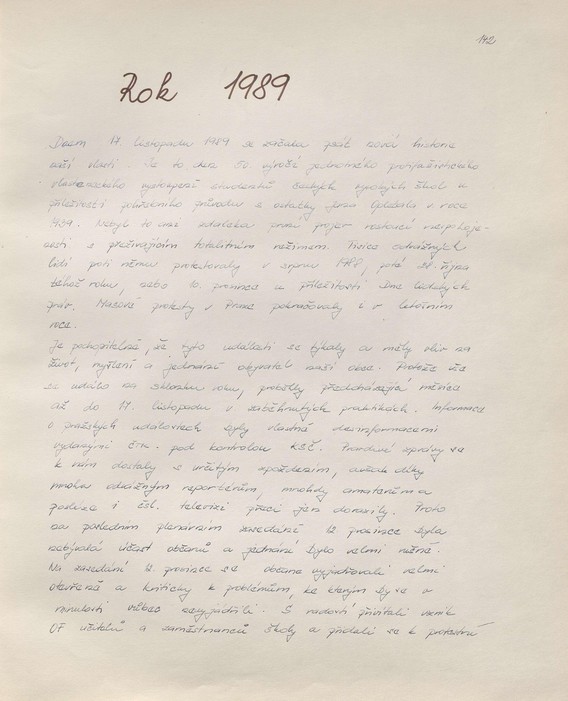 142
Rok 1989
Dnem 17. listopadu 1989 se začala psát nová historie
naší vlasti. Je to den 50. výročí jednotného protifašistického
vlasteneckého vystoupení studentů českých vysokých škol u
příležitosti pohřebního průvodu s ostatky Jana Opletala v roce
1939. Nebyl to ani zdaleka první projev rostoucí nespokoje-
nosti s přežívajícím totalitním režimem. Tisíce odvážných
lidí proti němu protestovaly v srpnu 1988, poté 28. října
téhož roku, nebo 10. prosince u příležitosti Dne lidských
práv. Masové protesty v Praze pokračovaly i v letošním
roce.
Je pochopitelné, že tyto události se týkaly a měly vliv na
život, myšlení a jednání obyvatel naší obce. Protože vše
se událo na sklonku roku, proběhly předcházející měsíce
až do 17. listopadu v zaběhnutých praktikách. Informace
o pražských událostech byly vlastně desinformacemi
vydávanými ČTK pod kontrolou KSČ. Pravdivé zprávy se
k nám dostaly s určitým zpožděním, avšak díky
mnoha odvážným reportérům, mnohdy amatérům a
posléze i čsl. televizi přeci jen dorazily. Proto
na posledním plenárním zasedání 12. prosince byla
nebývalá účast občanů a jednání bylo velmi rušné.
Na zasedání 12. prosince se občané vyjadřovali velmi
otevřeně a kriticky k problémům, ke kterým by se v
minulosti vůbec nevyjádřili. S radostí přivítali vznik
OF učitelů a zaměstnanců školy a přidali se k